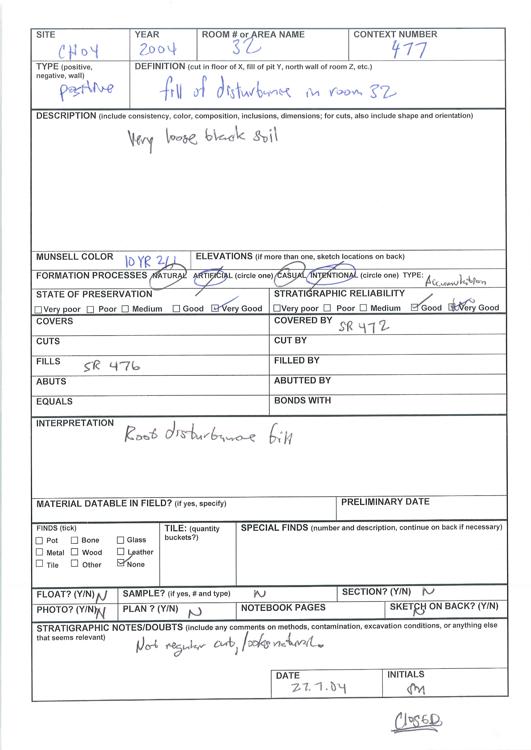 SITE YEAR ROOM # or AREA NAME CONTEXT NUMBER
CH04 2004 32 477
TYPE (positive, negative, wall) DEFINITION (cut in floor of X, fill of pit Y, north wall of room Z, etc.)
positive fill of disturbance in room 32
DESCRIPTION (include consistency, color, composition, inclusions, dimensions; for cuts, also include shape and orientation)
Very loose black soil
MUNSELL COLOR 10YR 2/1 ELEVATIONS (if more than one, sketch locations on back)
FORMATION PROCESSES NATURAL ARTIFICIAL (circle one) CASUAL INTENTIONAL (circle one) TYPE: Accumulation
STATE OF PRESERVATION STRATIGRAPHIC RELIABILITY
Very poor Poor Medium Good Very Good Very poor Poor Medium Good Very Good
COVERS COVERED BY SR 472
CUTS CUT BY
FILLS SR 476 FILLED BY
ABUTS ABUTTED BY
EQUALS BONDS WITH
INTERPRETATION
Root disturbance fill
MATERIAL DATABLE IN FIELD? (if yes, specify) PRELIMINARY DATE
FINDS (tick) TILE: (quantity buckets?) SPECIAL FINDS (number and description, continue on back if necessary)
Pot Bone Glass
Metal Wood Leather
Tile Other None
FLOAT? (Y/N) N SAMPLE? (if yes, # and type) N SECTION? (Y/N) N
PHOTO? (Y/N) N PLAN ? (Y/N) N NOTEBOOK PAGES SKETCH ON BACK? (Y/N) N
STRATIGRAPHIC NOTES/DOUBTS (include any comments on methods, contamination, excavation conditions, or anything else
that seems relevant)
Not regular cut, looks natural.
DATE INITIALS
27.7.04
CLOSED